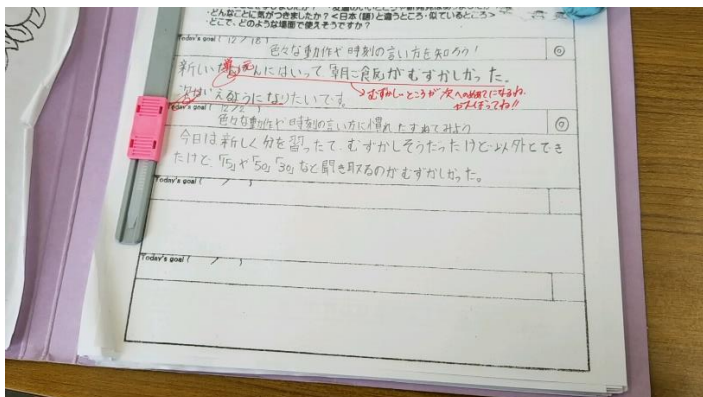 ・どんなことに気がつきましたか?<日本(語)と違うところ・似ているところ>
・どこで、どのような場面で使えそうですか?
Today's goal ( 12 / 18 )
色々な動作や時刻の言い方を知ろう!
◎
新しい単元にはいって「朝ご食反」がむずかしかった。
次はいえるようになりたいです。
むずかしいところが次へのめあてになるね。
がんばってね!!
Today's goal ( 12 / 21 )
色々な動作や時刻の言い方に慣れ、たずねてみよう
◎
今日は新しく分を習ったて、むずかしそうだったけど、以外とでき
たけど、「15」や「50」「30」など聞き取るのがむずかしかった。
Today's goal ( / )
Today's goal ( / )